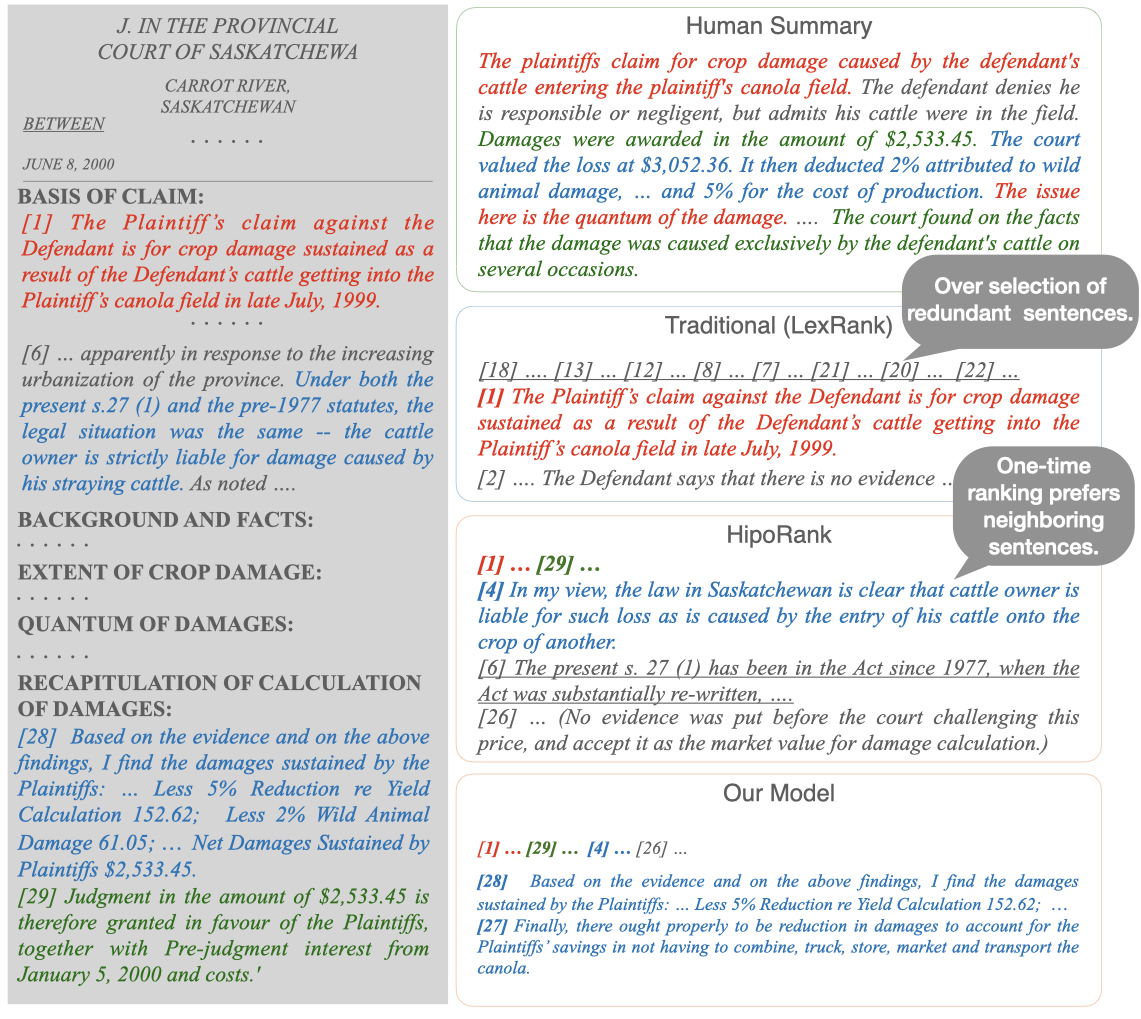 J. IN THE PROVINCIAL
COURT OF SASKATCHEWA
CARROT RIVER,
SASKATCHEWAN
BETWEEN
. . . . . .
JUNE 8, 2000
BASIS OF CLAIM:
[1] The Plaintiff's claim against the
Defendant is for crop damage sustained as a
result of the Defendant's cattle getting into the
Plaintiff's canola field in late July, 1999.
. . . . . .
[6] … apparently in response to the increasing
urbanization of the province. Under both the
present s.27 (1) and the pre-1977 statutes, the
legal situation was the same -- the cattle
owner is strictly liable for damage caused by
his straying cattle. As noted ….
BACKGROUND AND FACTS:
. . . . . .
EXTENT OF CROP DAMAGE:
. . . . . .
QUANTUM OF DAMAGES:
. . . . . .
RECAPITULATION OF CALCULATION
OF DAMAGES:
[28] Based on the evidence and on the above
findings, I find the damages sustained by the
Plaintiffs: … Less 5% Reduction re Yield
Calculation 152.62; Less 2% Wild Animal
Damage 61.05; … Net Damages Sustained by
Plaintiffs $2,533.45.
[29] Judgment in the amount of $2,533.45 is
therefore granted in favour of the Plaintiffs,
together with Pre-judgment interest from
January 5, 2000 and costs.'
Human Summary
The plaintiffs claim for crop damage caused by the defendant's
cattle entering the plaintiff's canola field. The defendant denies he
is responsible or negligent, but admits his cattle were in the field.
Damages were awarded in the amount of $2,533.45. The court
valued the loss at $3,052.36. It then deducted 2% attributed to wild
animal damage, … and 5% for the cost of production. The issue
here is the quantum of the damage. …. The court found on the facts
that the damage was caused exclusively by the defendant's cattle on
several occasions.
Over selection of
redundant sentences.
Traditional (LexRank)
[18] …. [13] … [12] … [8] … [7] … [21] … [20] … [22] …
[1] The Plaintiff's claim against the Defendant is for crop damage
sustained as a result of the Defendant's cattle getting into the
Plaintiff's canola field in late July, 1999.
[2] …. The Defendant says that there is no evidence ..
One-time
ranking prefers
neighboring
sentences.
HipoRank
[1] … [29] …
[4] In my view, the law in Saskatchewan is clear that cattle owner is
liable for such loss as is caused by the entry of his cattle onto the
crop of another.
[6] The present s. 27 (1) has been in the Act since 1977, when the
Act was substantially re-written, ….
[26] … (No evidence was put before the court challenging this
price, and accept it as the market value for damage calculation.)
Our Model
[1] … [29] … [4] … [26] …
[28] Based on the evidence and on the above findings, I find the damages
sustained by the Plaintiffs: … Less 5% Reduction re Yield Calculation 152.62; …
[27] Finally, there ought properly to be reduction in damages to account for the
Plaintiffs' savings in not having to combine, truck, store, market and transport the
canola.